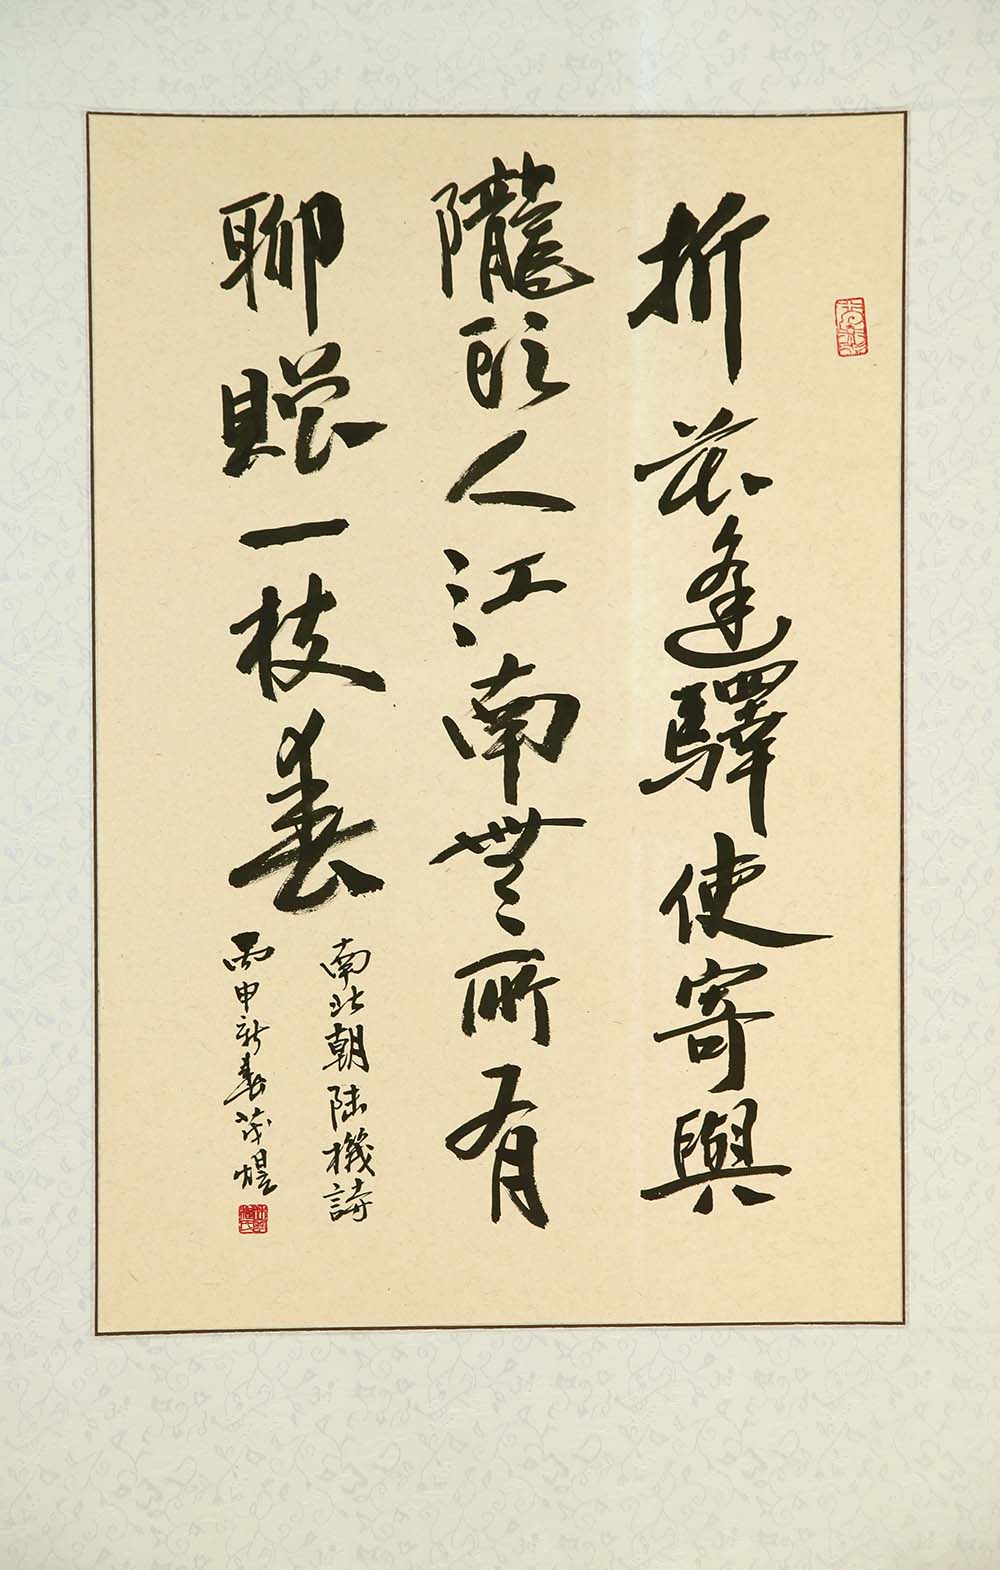 折花逢驛使寄與
隴頭人江南無所有
聊贈一枝春
南北朝陸機詩
丙申新春茂煜